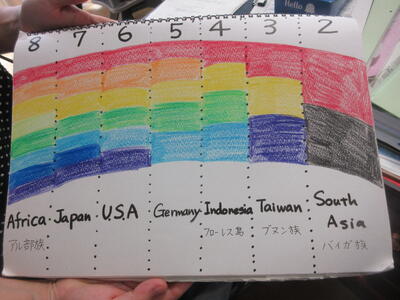 Hello
8 7 6 5 4 3 2
Africa・Japan・U.S.A Germany Indonesia Taiwan South Asia
アル部族 フローレス島 ブヌン族 バイガ族